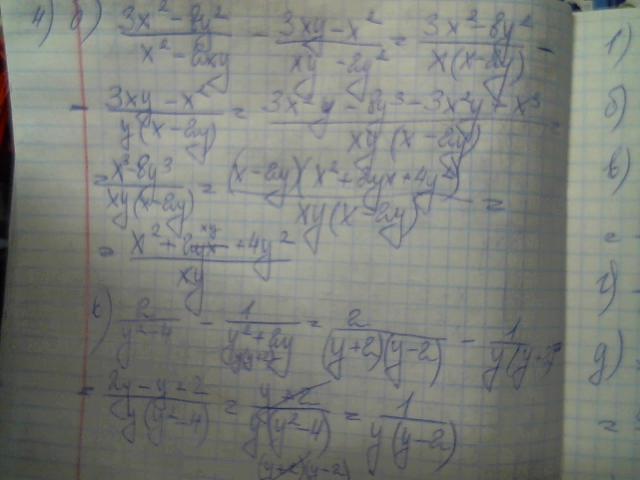 4) б) (3x² - 8y²)/(x² - 2xy) - (3xy - x²)/(xy - 2y²) = (3x² - 8y²)/(x(x - 2y)) -
- (3xy - x²)/(y(x - 2y)) = (3x²y - 8y³ - 3x²y + x³)/(xy(x - 2y)) =
= (x³ - 8y³)/(xy(x - 2y)) = ((x - 2y)(x² + 2yx + 4y²))/(xy(x - 2y)) =
= (x² + 2xy + 4y²)/(xy)
в) 2/(y² - 4) - 1/(y² + 2y) = 2/((y + 2)(y - 2)) - 1/(y(y + 2)) =
= (2y - y + 2)/(y(y² - 4)) = (y + 2)/(y(y² - 4)) = 1/(y(y - 2))
(y + 2)(y - 2)
1)
б)
в)
=
г)
д)
=